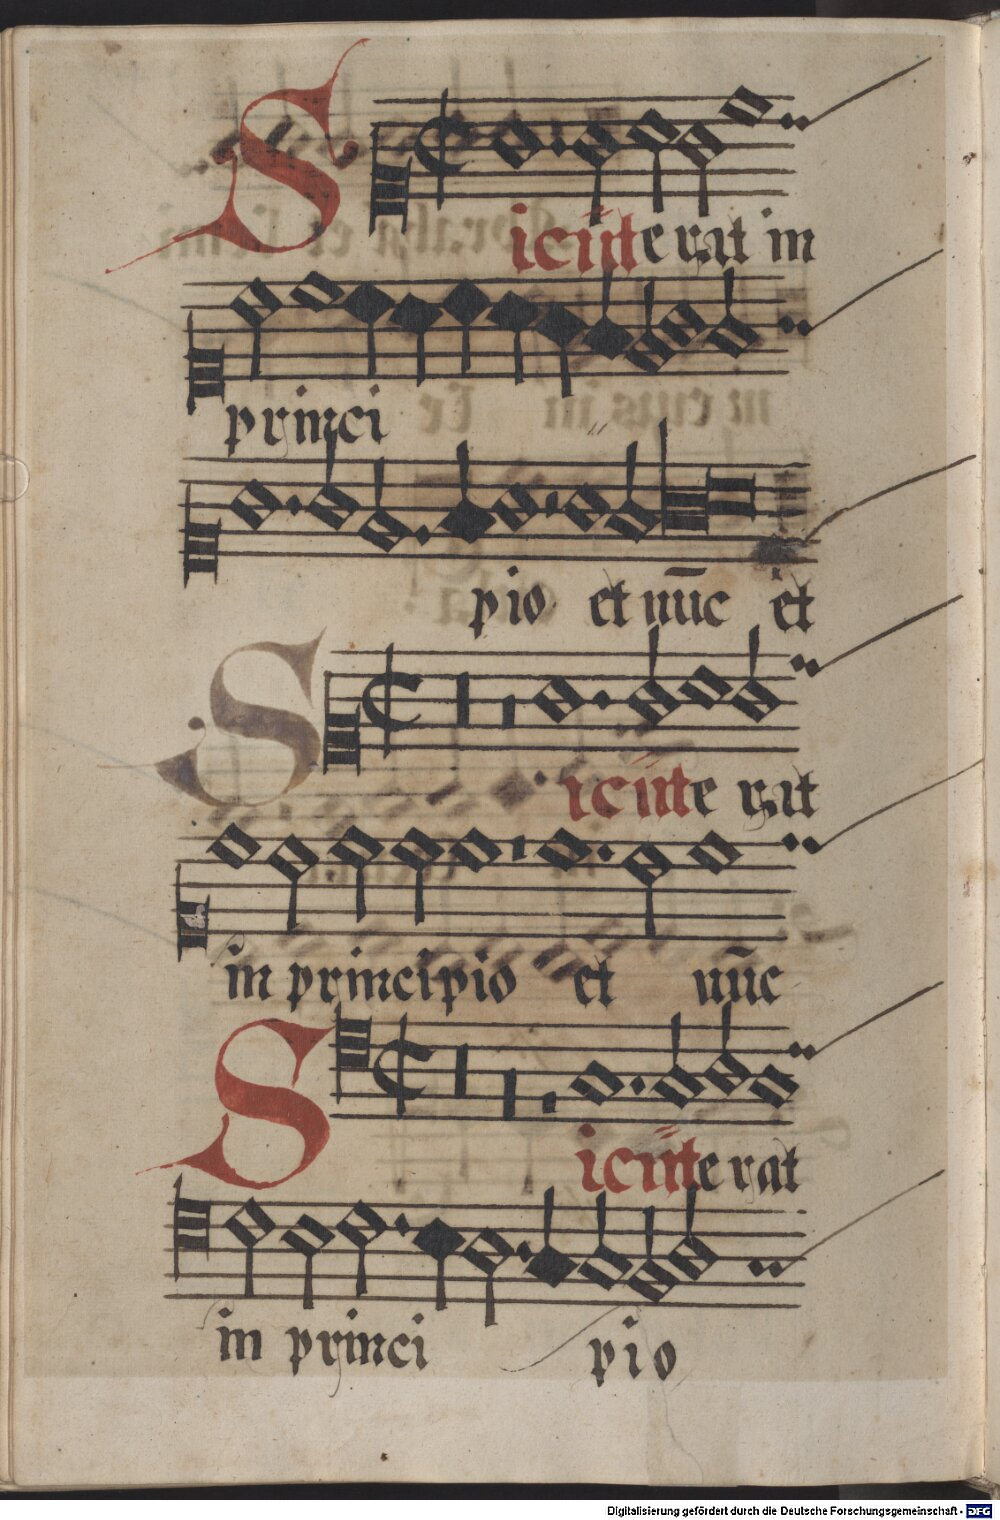 Sicut erat in
princi
pio et nūc et
Sicut erat
in principio et nūc
Sicut erat
in princi pio
Digitalisierung gefördert durch die Deutsche Forschungsgemeinschaft - DFG